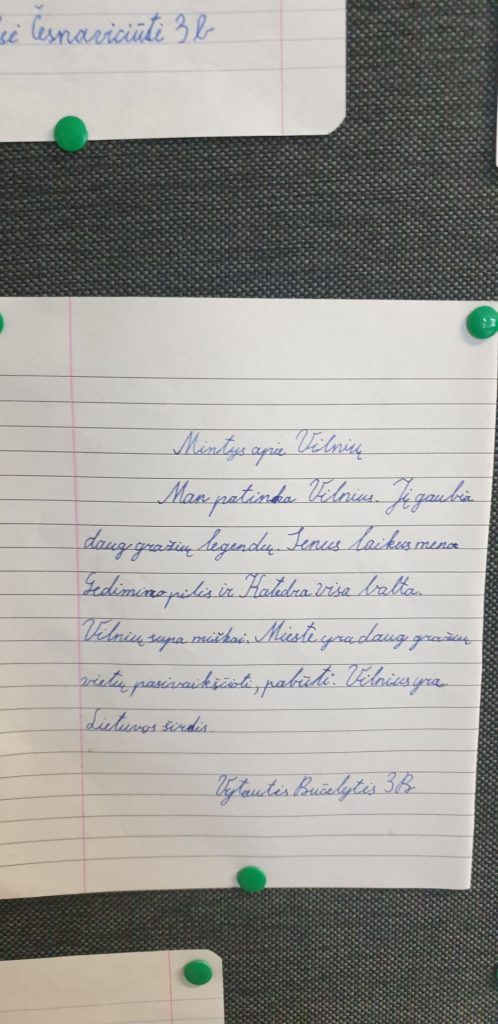 Česnavičiūtė 3b
Mintys apie Vilnių
Man patinka Vilnius. Jį gaubia
daug gražių legendų. Senus laikus mena
Gedimino pilis ir Katedra visa balta.
Vilnių supa miškai. Mieste yra daug gražių
vietų pasivaikščioti, pabūti. Vilnius yra
Lietuvos širdis.
3B